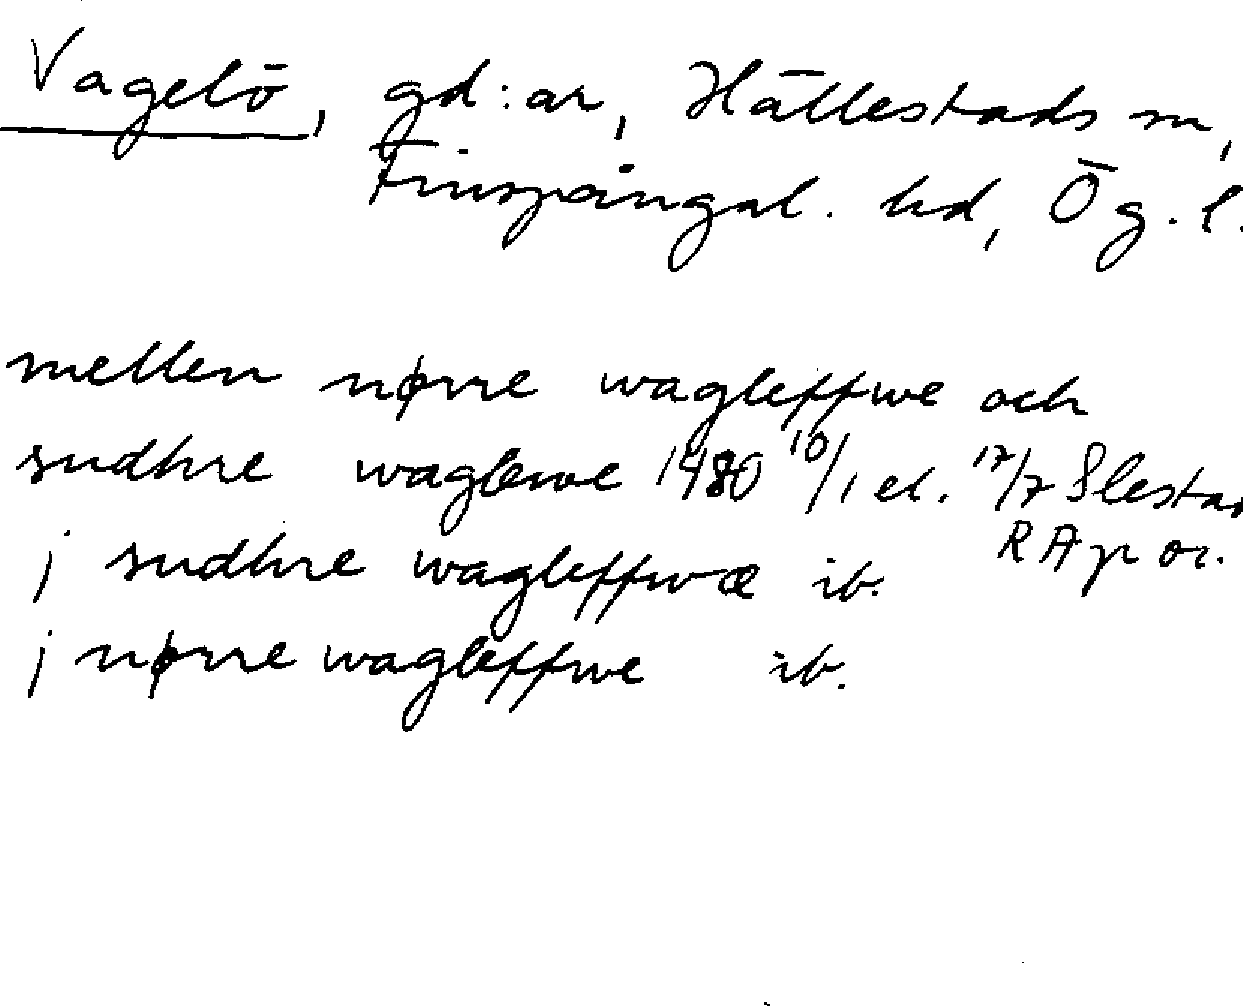 Vagelö, gd:ar, Hällestads sn,
Finspångal. hd, Ög. l.
mellen nørre wagleffwe och
sudhre waglewe 1480 10/1 el. 17/7 Slestad
RA p or.
j sudhre wagleffwæ ib.
j nørre wagleffwe ib.